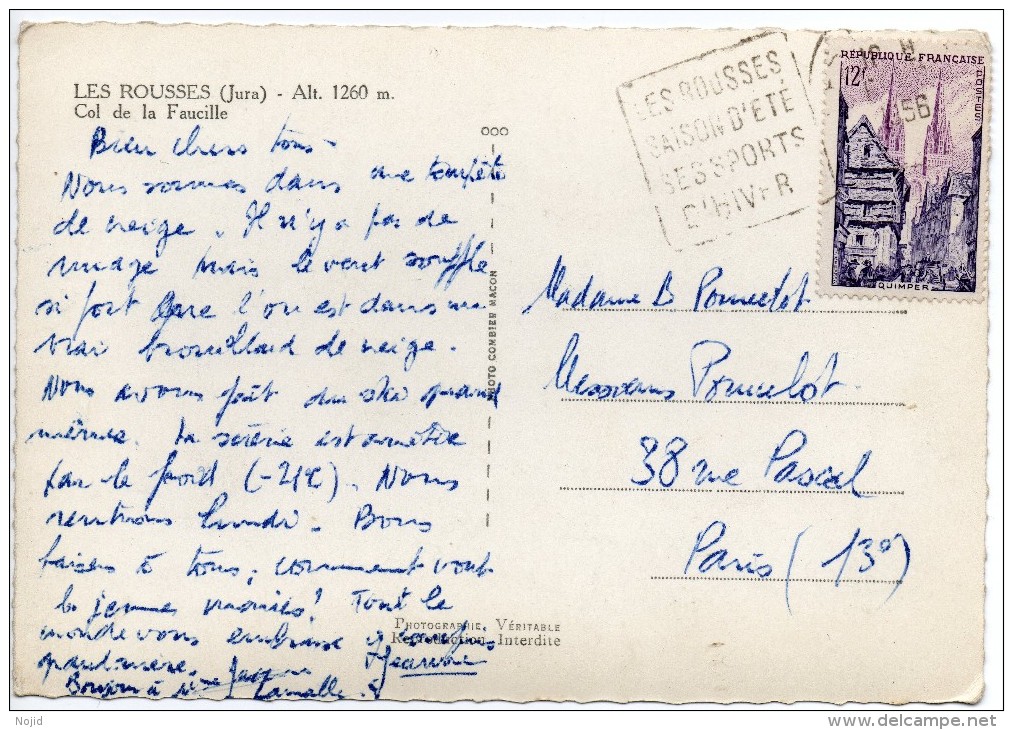 LES ROUSSES (Jura) - Alt. 1260 m.
Col de la Faucille
Bien chers tous -
Nous sommes dans une tempête
de neige. Il n'y a pas de
nuage mais le vent souffle
si fort que l'on est dans un
vrai brouillard de neige.
Nous avons fait du ski quand
même. la est arrêtée
par le froid (-21°C). Nous
rentrons lundi. Bons
baisers à tous, comment vont
les jeunes mariés? Tout le
monde vous embrasse
grandmère. Jacques Jeanne
Bonjour à Mme
ooo
PHOTO COMBIER MACON
PHOTOGRAPHIE VÉRITABLE
Reproduction Interdite
LES ROUSSES
SAISON D'ETE
SES SPORTS
D'HIVER
56
RÉPUBLIQUE FRANÇAISE
12F
POSTES
QUIMPER
Madame
Messieurs
38 rue Pascal
Paris (13e)
Nojid
delcampe.net